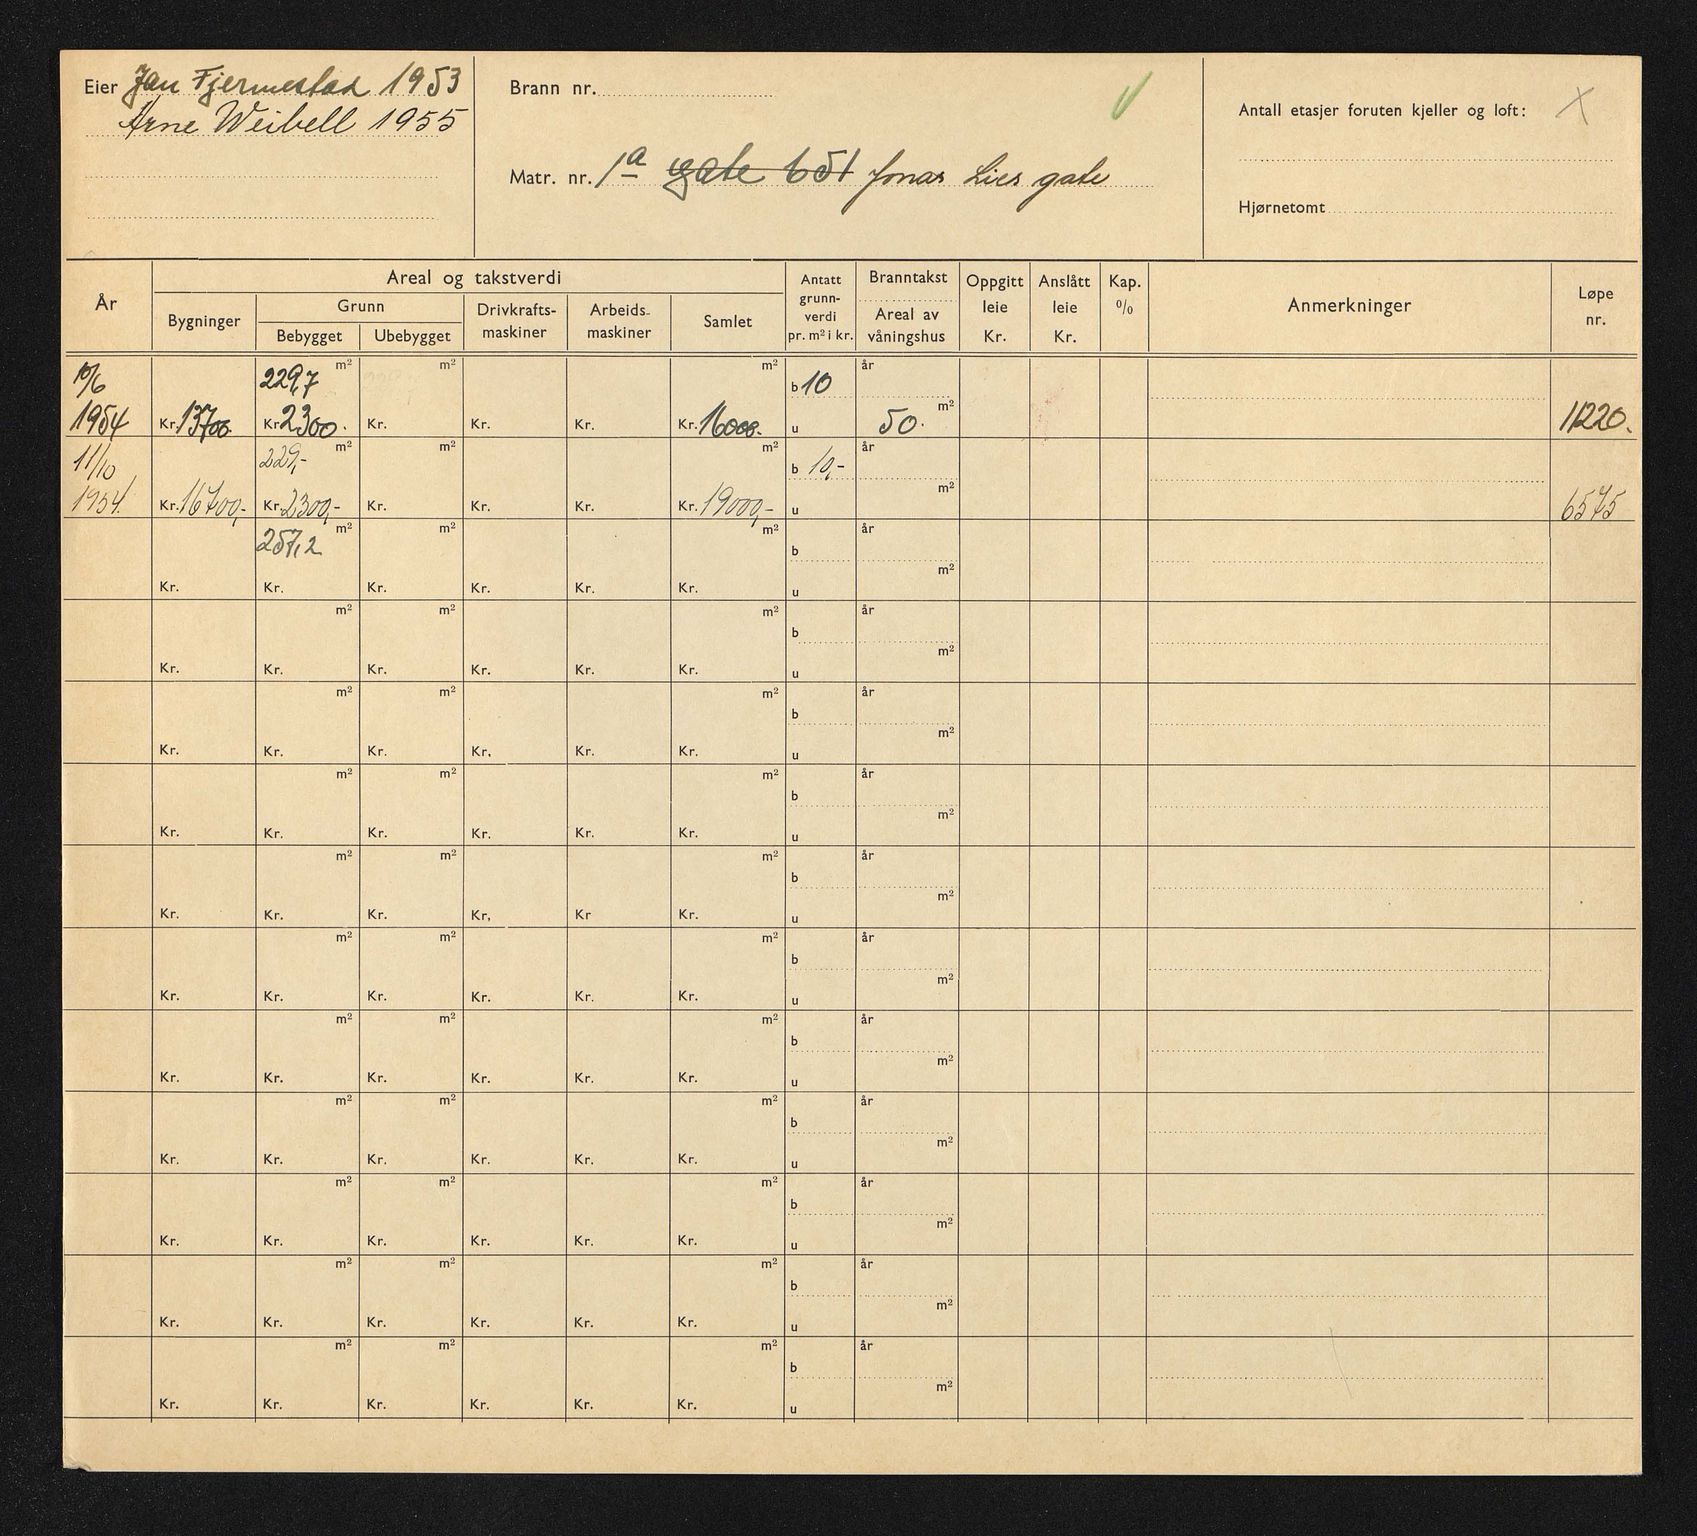 Eier Jan Fjermestad 1953
Arne Weibell 1955
Brann nr.
Matr. nr. 1a gate 651 Jonas Lies gate
Antall etasjer foruten kjeller og loft: X
Hjørnetomt
År
Areal og takstverdi
Bygninger
Grunn
Bebygget Ubebygget
Drivkrafts-
maskiner
Arbeids-
maskiner
Samlet
Antatt
grunn-
verdi
pr. m² i kr.
Branntakst
Areal av
våningshus
Oppgitt
leie
Kr.
Anslått
leie
Kr.
Kap.
%
Anmerkninger
Løpe
nr.
10/6 229,7 m² m² m² b 10 år
1954 Kr. 13700 Kr. 2300. Kr. Kr. Kr. Kr. 16000. u 50. m² 11220.
11/10 229,- m² m² m² b 10,- år
1954. Kr. 16700,- Kr. 2300,- Kr. Kr. Kr. Kr. 19000,- u m² 6575
257,2 m² m² m² b år
Kr. Kr. Kr. Kr. Kr. Kr. u m²
m² m² m² b år
Kr. Kr. Kr. Kr. Kr. Kr. u m²
m² m² m² b år
Kr. Kr. Kr. Kr. Kr. Kr. u m²
m² m² m² b år
Kr. Kr. Kr. Kr. Kr. Kr. u m²
m² m² m² b år
Kr. Kr. Kr. Kr. Kr Kr. u m²
m² m² m² b år
Kr. Kr. Kr. Kr. Kr. Kr. u m²
m² m² m² b år
Kr. Kr. Kr. Kr. Kr. Kr. u m²
m² m² m² b år
Kr. Kr. Kr. Kr. Kr. Kr. u m²
m² m² m² b år
Kr. Kr. Kr. Kr. Kr. Kr. u m²
m² m² m² b år
Kr. Kr. Kr. Kr. Kr. Kr. u m²
m² m² m² b år
Kr. Kr. Kr. Kr. Kr. Kr. u m²